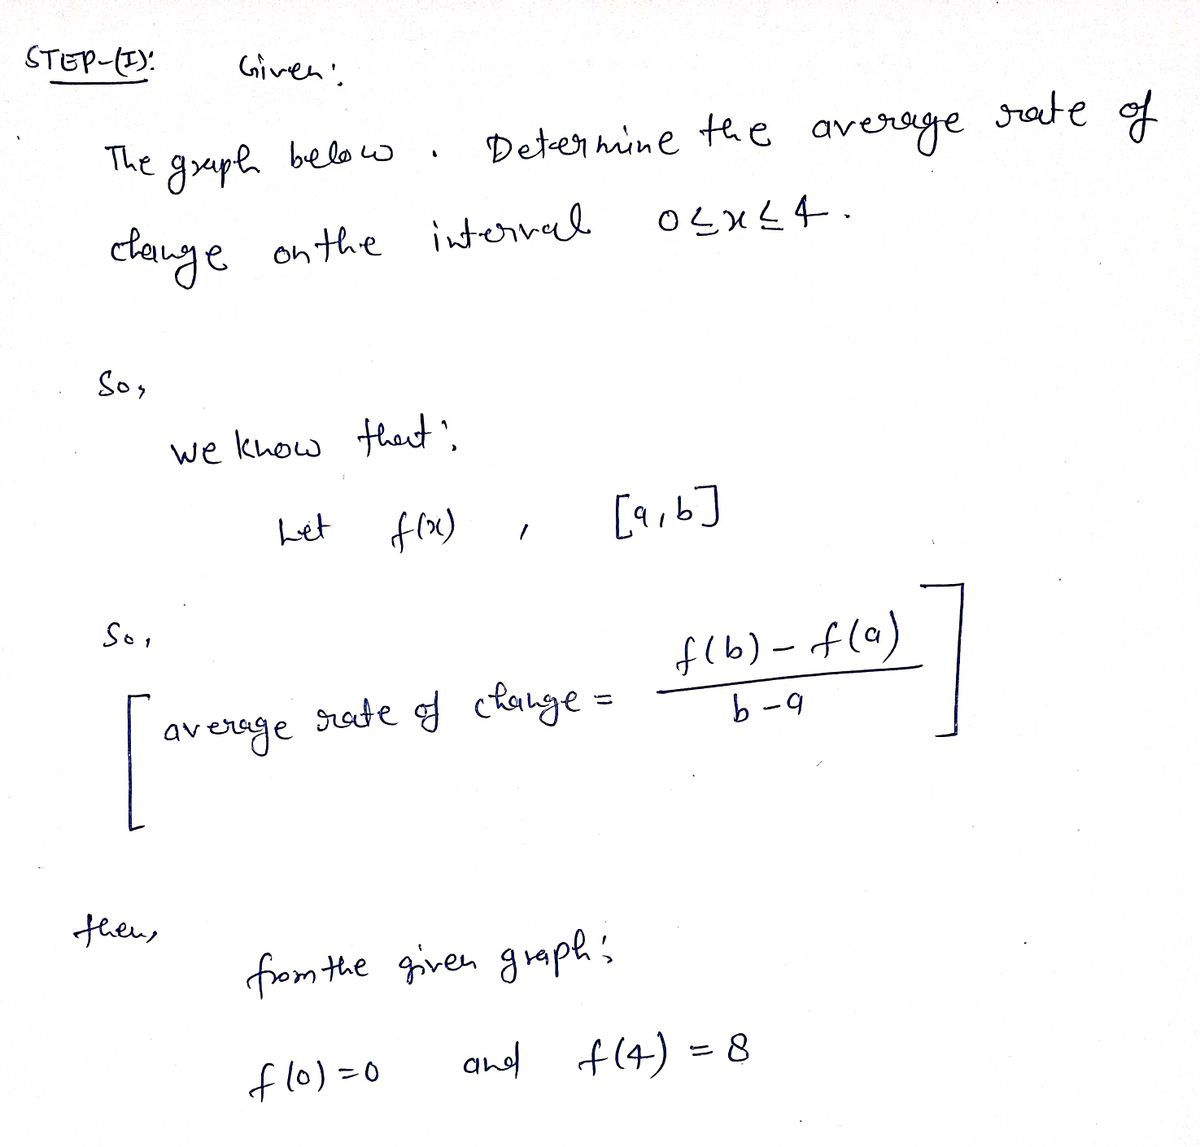 STEP-(I): Given:
The graph below. Determine the average rate of
change on the interval 0≤x≤4.
So,
we know that:
Let f(x) , [a,b]
So,
[average rate of change = f(b) - f(a) / b - a]
then,
from the given graph:
f(0)=0 and f(4) = 8